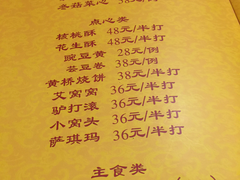 冬菇菜心 38元/例
点心类
核桃酥 48元/半打
花生酥 48元/半打
豌豆黄 28元/例
芸豆卷 38元/例
黄桥烧饼 38元/半打
艾窝窝 36元/半打
驴打滚 36元/半打
小窝头 36元/半打
萨琪玛 36元/半打
主食类